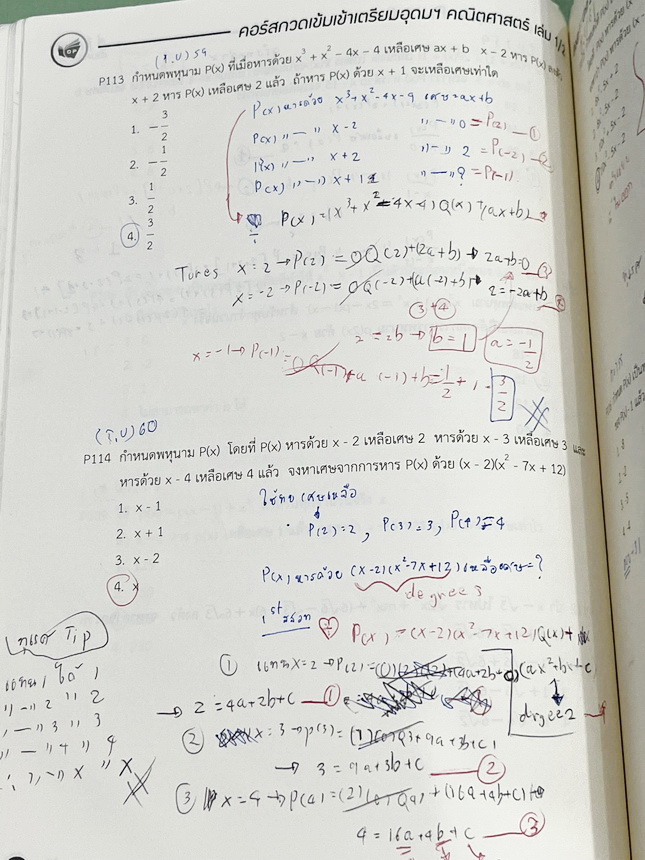 คอร์สกวดเข้มเข้าเตรียมอุดมฯ คณิตศาสตร์ เล่ม 1/2
(T.U) 59
P113 กำหนดพหุนาม P(x) ที่เมื่อหารด้วย x³ + x² − 4x − 4 เหลือเศษ ax + b x − 2 หาร P(x)
x + 2 หาร P(x) เหลือเศษ 2 แล้ว ถ้าหาร P(x) ด้วย x + 1 จะเหลือเศษเท่าใด
1. −3/2
2. −1/2
3. 1/2
4. 3/2
P(x) หารด้วย x³+x²-4x-4 เศษ=ax+b
P(x) 〃 — 〃 x-2 〃 — 〃 0 = P(2) — ①
P(x) 〃 — 〃 x+2 〃 — 〃 2 = P(-2) — ②
P(x) 〃 — 〃 x+1 〃 — 〃 ? = P(-1)
P(x) = (x³+x²-4x-4) Q(x) + (ax+b)
x=2 → P(2) = 0Q(2)+(2a+b) → 2a+b=0 ③
x=-2 → P(-2) = 0Q(-2)+(a(-2)+b) → 2=-2a+b ④
③+④
2 = 2b → b=1 a=-1/2
x=-1 → P(-1) = 0Q(-1)+a(-1)+b = 1/2 + 1 = 3/2
(T.U) 60
P114 กำหนดพหุนาม P(x) โดยที่ P(x) หารด้วย x - 2 เหลือเศษ 2 หารด้วย x - 3 เหลือเศษ 3 และ
หารด้วย x - 4 เหลือเศษ 4 แล้ว จงหาเศษจากการหาร P(x) ด้วย (x - 2)(x² - 7x + 12)
1. x - 1
2. x + 1
3. x - 2
4. x
เศษเหลือ
P(2)=2, P(3)=3, P(4)=4
P(x) หารด้วย (x-2)(x²-7x+12) เหลือเศษ=?
degree 3
1st
P(x) = (x-2)(x²-7x+12)Q(x)+
(ax²+bx+c)
degree 2
① แทน x=2 → P(2)=
→ 2 = 4a+2b+c — ①
② x=3 → P(3)= + 9a+3b+c
→ 3 = 9a+3b+c — ②
③ x=4 → P(4)= + (16a+4b+c)
4 = 16a+4b+c — ③
Tip
แทน 1 ได้ 1
〃 — 2 〃 2
〃 — 3 〃 3
〃 — 4 〃 4
x 〃 x